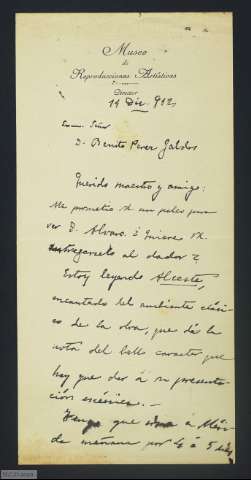 Museo
de
Reproducciones Artísticas
Director
14 Dic. 912
Excmo. Señor
D. Benito Perez Galdos
Querido maestro y amigo:
Me prometió Vd. un palco para
ver D. Alvaro. ¿Quiere Vd.
entregárselo al dador?
Estoy leyendo Alceste,
encantado del ambiente clási-
co de la obra, que da la
nota del bello caracter que
hay que dar á su presenta-
ción escénica.—
Tengo que á
de mañana por 4 á 5 dias